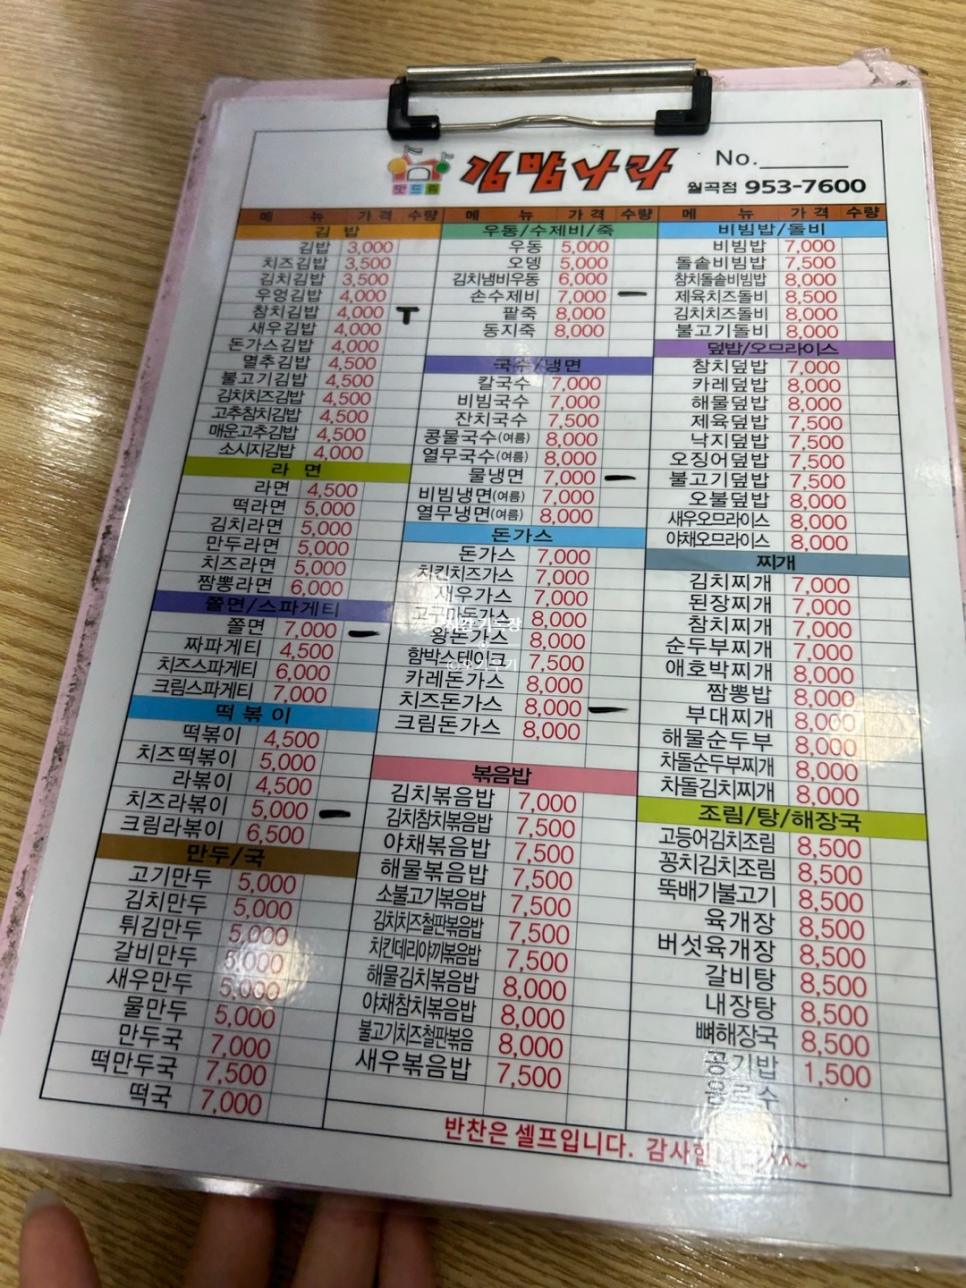 No.
맛드림
월곡점 953-7600
메 뉴 가 격 수량
김 밥
김밥 3,000
치즈김밥 3,500
김치김밥 3,500
우엉김밥 4,000
참치김밥 4,000 T
새우김밥 4,000
돈가스김밥 4,000
멸추김밥 4,500
불고기김밥 4,500
김치치즈김밥 4,500
고추참치김밥 4,500
매운고추김밥 4,500
소시지김밥 4,000
라 면
라면 4,500
떡라면 5,000
김치라면 5,000
만두라면 5,000
치즈라면 5,000
짬뽕라면 6,000
쫄면/스파게티
쫄면 7,000
짜파게티 4,500
치즈스파게티 6,000
크림스파게티 7,000
떡 볶 이
떡볶이 4,500
치즈떡볶이 5,000
라볶이 4,500
치즈라볶이 5,000
크림라볶이 6,500
만두/국
고기만두 5,000
김치만두 5,000
튀김만두 5,000
갈비만두 5,000
새우만두 5,000
물만두 5,000
만두국 7,000
떡만두국 7,500
떡국 7,000
메 뉴 가 격 수량
우동/수제비/죽
우동 5,000
오뎅 5,000
김치냄비우동 6,000
손수제비 7,000
팥죽 8,000
동지죽 8,000
국수/냉면
칼국수 7,000
비빔국수 7,000
잔치국수 7,500
콩물국수(여름) 8,000
열무국수(여름) 8,000
물냉면 7,000
비빔냉면(여름) 7,000
열무냉면(여름) 8,000
돈가스
돈가스 7,000
치킨치즈가스 7,000
새우가스 7,000
8,000
왕돈가스 8,000
함박스테이크 7,500
카레돈가스 8,000
치즈돈가스 8,000
크림돈가스 8,000
볶음밥
김치볶음밥 7,000
김치참치볶음밥 7,500
야채볶음밥 7,500
해물볶음밥 7,500
소불고기볶음밥 7,500
김치치즈철판볶음밥 7,500
치킨데리야끼볶음밥 7,500
해물김치볶음밥 8,000
야채참치볶음밥 8,000
불고기치즈철판볶음 8,000
새우볶음밥 7,500
메 뉴 가 격 수량
비빔밥/돌비
비빔밥 7,000
돌솥비빔밥 7,500
참치돌솥비빔밥 8,000
제육치즈돌비 8,500
김치치즈돌비 8,000
불고기돌비 8,000
덮밥/오므라이스
참치덮밥 7,000
카레덮밥 8,000
해물덮밥 8,000
제육덮밥 7,500
낙지덮밥 7,500
오징어덮밥 7,500
불고기덮밥 7,500
오불덮밥 8,000
새우오므라이스 8,000
야채오므라이스 8,000
찌개
김치찌개 7,000
된장찌개 7,000
참치찌개 7,000
순두부찌개 7,000
애호박찌개 8,000
짬뽕밥 8,000
부대찌개 8,000
해물순두부 8,000
차돌순두부찌개 8,000
차돌김치찌개 8,000
조림/탕/해장국
고등어김치조림 8,500
꽁치김치조림 8,500
뚝배기불고기 8,500
육개장 8,500
버섯육개장 8,500
갈비탕 8,500
내장탕 8,500
뼈해장국 8,500
공기밥 1,500
음료수
반찬은 셀프입니다. 감사합니다^^~